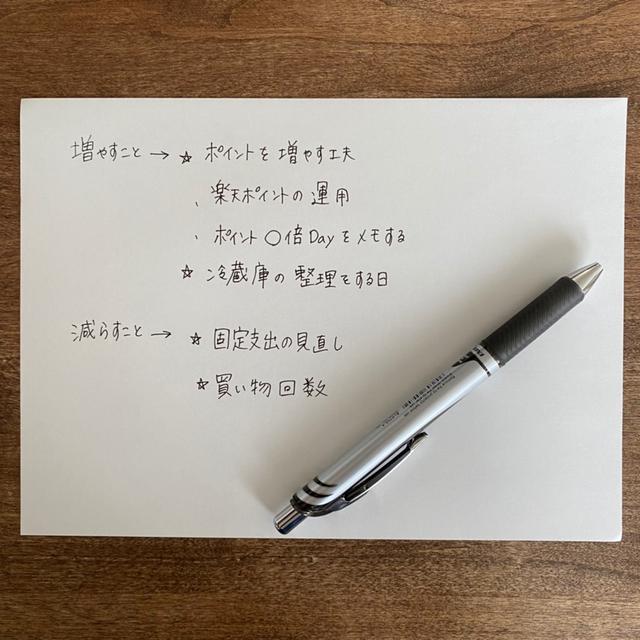 増やすこと → ☆ ポイントを増やす工夫
、楽天ポイントの運用
、ポイント〇倍Dayをメモする
☆ 冷蔵庫の整理をする日
減らすこと → ☆ 固定支出の見直し
☆ 買い物回数